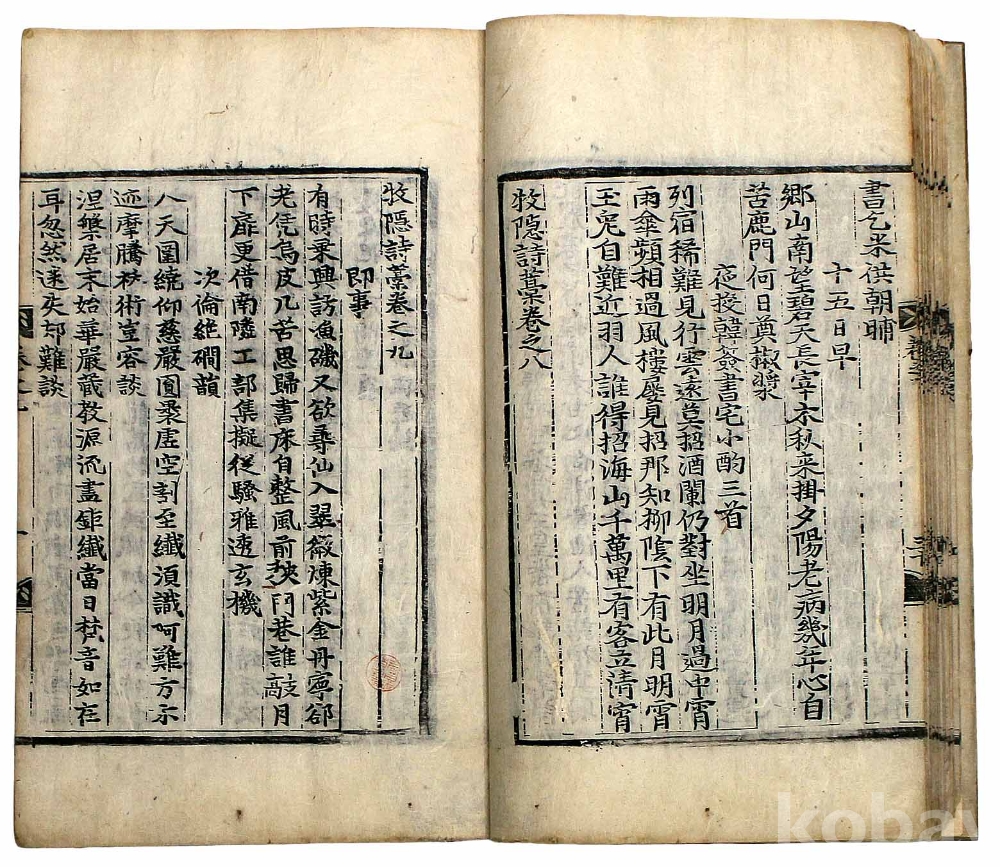 書乞米供朝晡
十五日早
鄕山南望碧天長宰木秋来掛夕陽老病幾年心自
苦鹿門何日奠椒漿
夜投韓簽書宅小酌三首
列宿稀難見行雲遠莫招酒闌仍對坐明月過中霄
雨傘頻相過風樓屢見招那知柳陰下有此月明霄
玉兔自難近羽人誰得招海山千萬里有客立清霄
牧隱詩藁卷之八
牧隱詩藁卷之九
即事
有時乗興訪漁磯又欲尋仙入翠薇煉紫金丹寧郤
老凭烏皮几苦思歸書床自整風前秩門巷誰敲月
下扉更借南隣工部集擬從騷雅透玄機
次倫絶磵韻
八天圍繞仰慈嚴圎柔虛空割至纎湏識呵難方示
迹摩騰秘術豈容談
涅槃居末始華嚴藏敎源流盡鉅纎當日梵音如在
耳忽然迷失却難談
koba